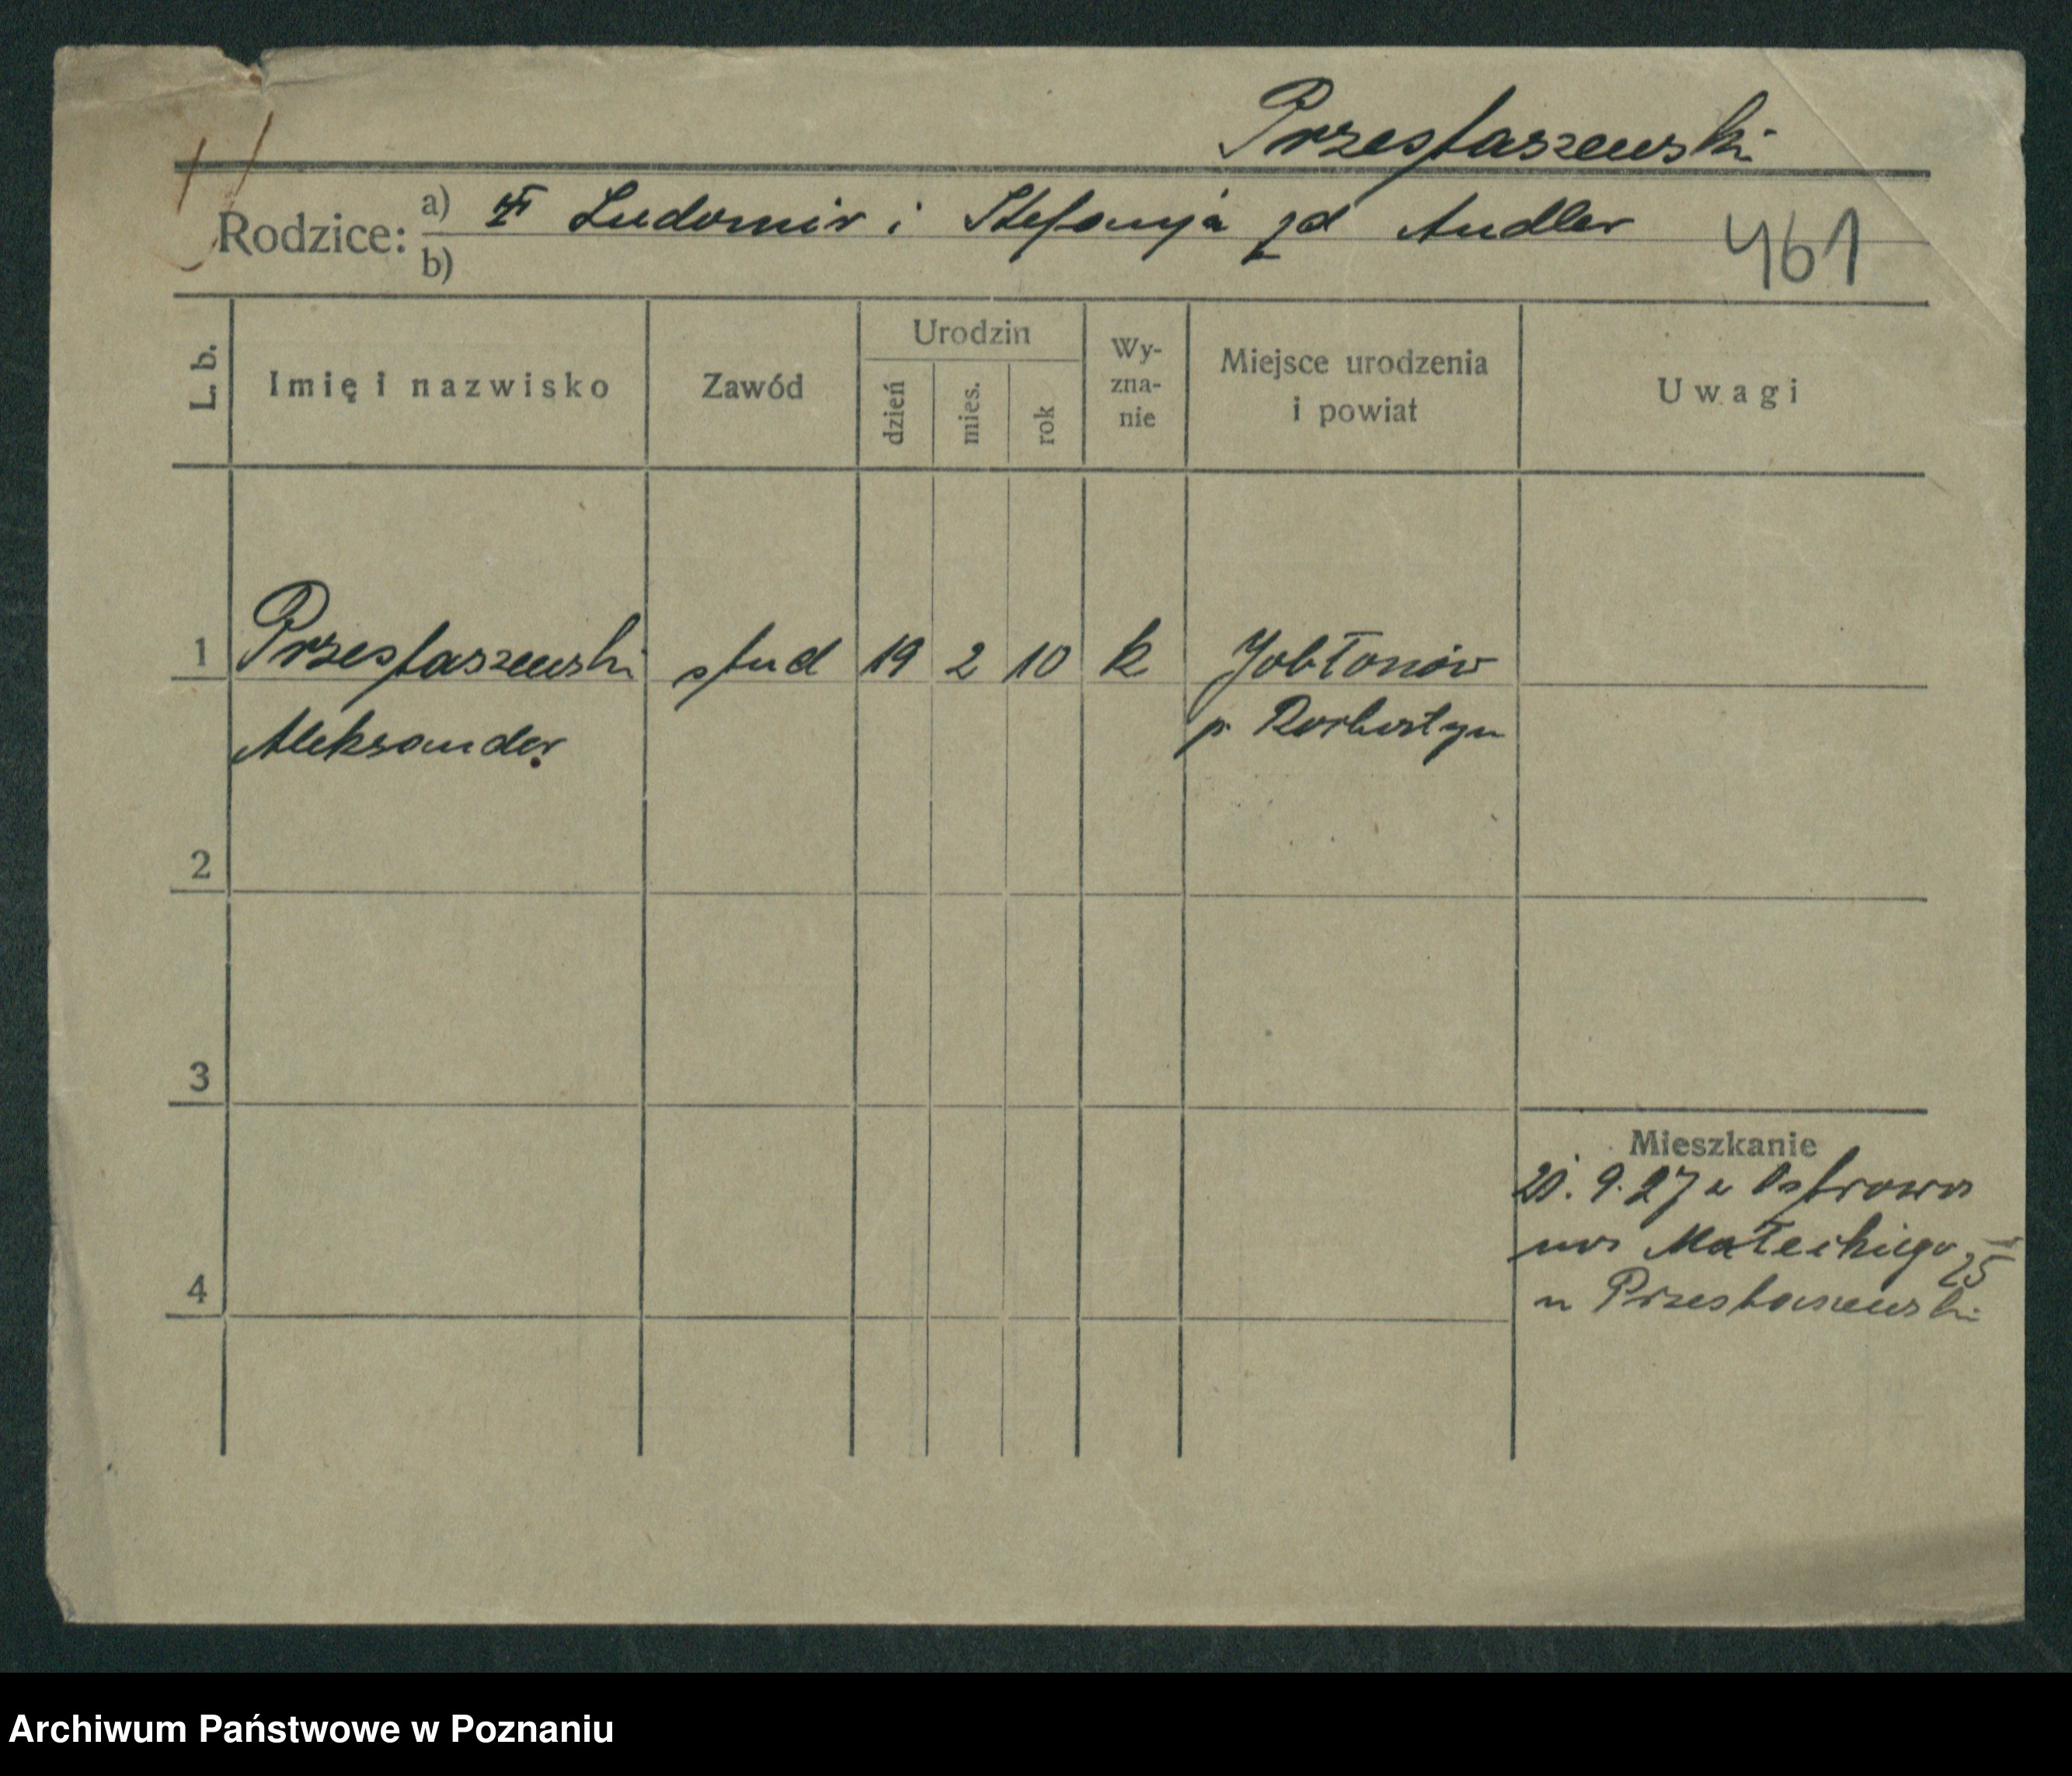 Przestaszewski
Rodzice: a) Ludomir i Stefanja zd Andler 461
b)
L. b. Imię i nazwisko Zawód Urodzin dzień mies. rok Wy-zna-nie Miejsce urodzenia i powiat Uwagi
1 Przestaszewski stud 19 2 10 k Jabłonów
Aleksander p. Rorhostyn
2
3
Mieszkanie
20. 9. 27 z Ostrowa
na Małeckiego 25
u Przestaszewski
4
Archiwum Państwowe w Poznaniu